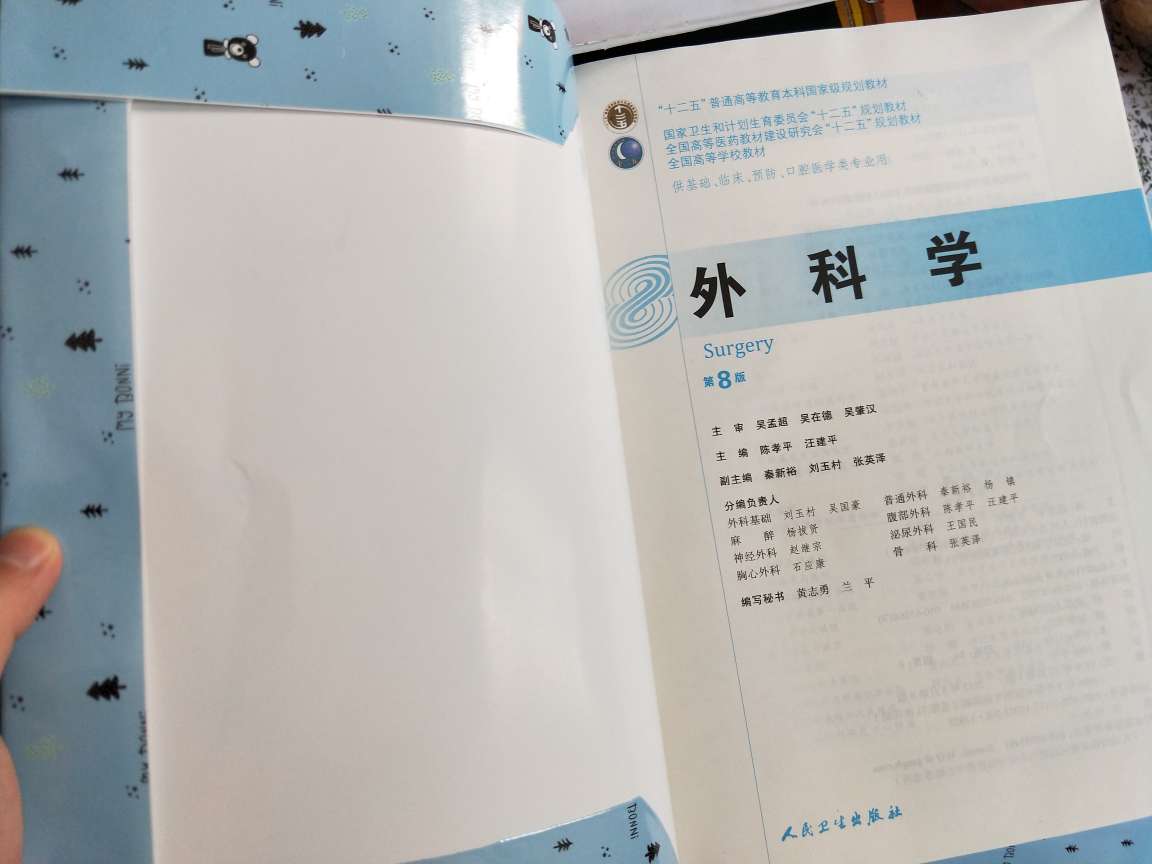 “十二五”普通高等教育本科国家级规划教材
国家卫生和计划生育委员会“十二五”规划教材
全国高等医药教材建设研究会“十二五”规划教材
全国高等学校教材
供基础、临床、预防、口腔医学类专业用
8
外科学
Surgery
第8版
主 审 吴孟超 吴在德 吴肇汉
主 编 陈孝平 汪建平
副主编 秦新裕 刘玉村 张英泽
分编负责人
外科基础 刘玉村 吴国豪 普通外科 秦新裕 杨镇
麻 醉 杨拔贤 腹部外科 陈孝平 汪建平
神经外科 赵继宗 泌尿外科 王国民
胸心外科 石应康 骨 科 张英泽
编写秘书 黄志勇 兰 平
人民卫生出版社
MY BONNI
BONNI